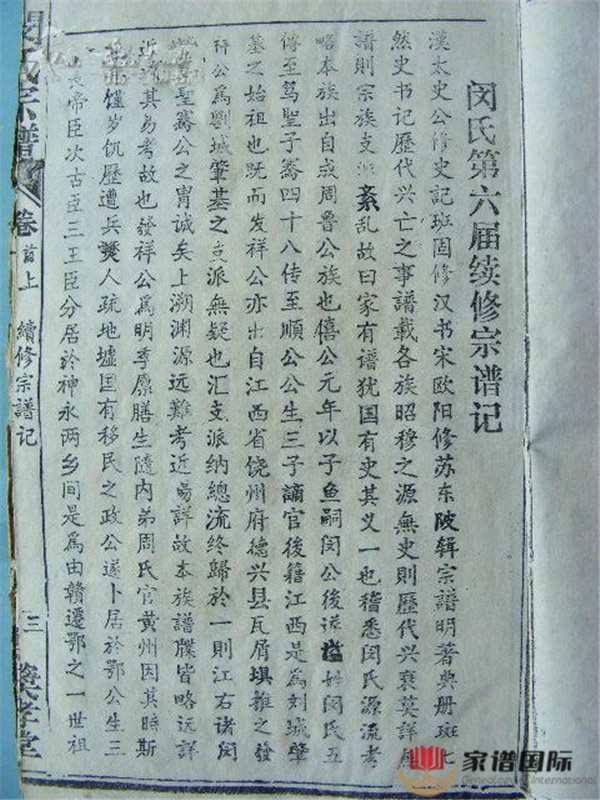 闵氏第六届续修宗谱记
漢太史公修史記班固修汉书宋欧阳修苏东陂辑宗譜明著典册班七
然史书记歷代兴亡之事譜載各族昭穆之源無史則歷代兴衰莫詳無
譜則宗族支派紊乱故曰家有谱犹国有史其义一也稽悉闵氏源流考
略本族出自戎周鲁公族也僖公元年以子鱼嗣闵公後 謚姓闵氏五
傳至篤聖子騫四十八传至順公公生三子謫官後籍江西是爲刘城肇
基之始祖也既而发祥公亦出自江西省饶州府德兴县瓦屑垻推之發
祥公爲劉城肇基之支派無疑也汇支派纳總流终歸於一則江右诸闵
聖騫公之胄誠矣上溯渊源远難考近易詳故本族譜牒皆略远詳
近 其易考故也發祥公爲明季廪膳生隨内弟周氏官黄州因其時斯
馑岁饥歷遭兵燹人疏地墟国有移民之政公遂卜居於鄂公生三
帝臣次古臣三王臣分居於神永两乡间是爲由贛遷鄂之一世祖
宗譜
卷首上
續修宗譜记
三
孝堂
家谱国际
Genealogical International